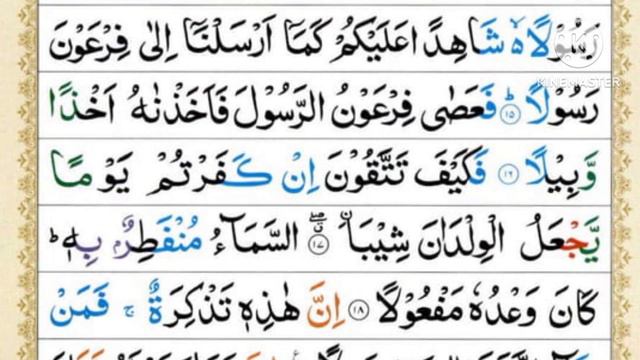 رَسُوْلًا ۙ شَاهِدًا عَلَيْكُمْ كَمَاۤ اَرْسَلْنَاۤ اِلٰى فِرْعَوْنَ
KINEMASTER
رَسُوْلًا ؕ ۝۱۵ فَعَصٰى فِرْعَوْنُ الرَّسُوْلَ فَاَخَذْنٰهُ اَخْذًا
وَّبِيْلًا ۝۱۶ فَكَيْفَ تَتَّقُوْنَ اِنْ كَفَرْتُمْ يَوْمًا
يَّجْعَلُ الْوِلْدَانَ شِيْبَا ۝۱۷ السَّمَآءُ مُنْفَطِرٌۢ بِهٖ ؕ
كَانَ وَعْدُهٗ مَفْعُوْلًا ۝۱۸ اِنَّ هٰذِهٖ تَذْكِرَةٌ ۚ فَمَنْ